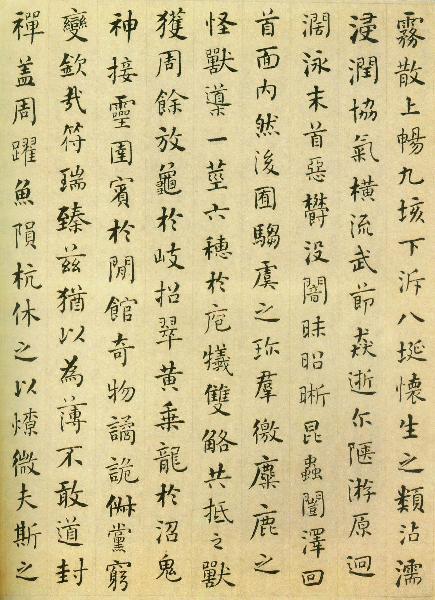 霧散上暢九垓下泝八埏懷生之類沾濡
浸潤協氣橫流武節焱逝尓陿游原迥
濶泳末首惡欝没闇昧昭晣昆蟲闓澤回
首面内然後囿騶虞之珍羣徼麋鹿之
怪獸導一莖六穗於庖犧雙觡共抵之獸
獲周餘放龜於岐招翠黃乗龍於沼鬼
神接靈圉賓於閒館奇物譎詭俶黨窮
變欽哉符瑞臻兹猶以為薄不敢道封
禪盖周躍魚隕杭休之以燎微夫斯之